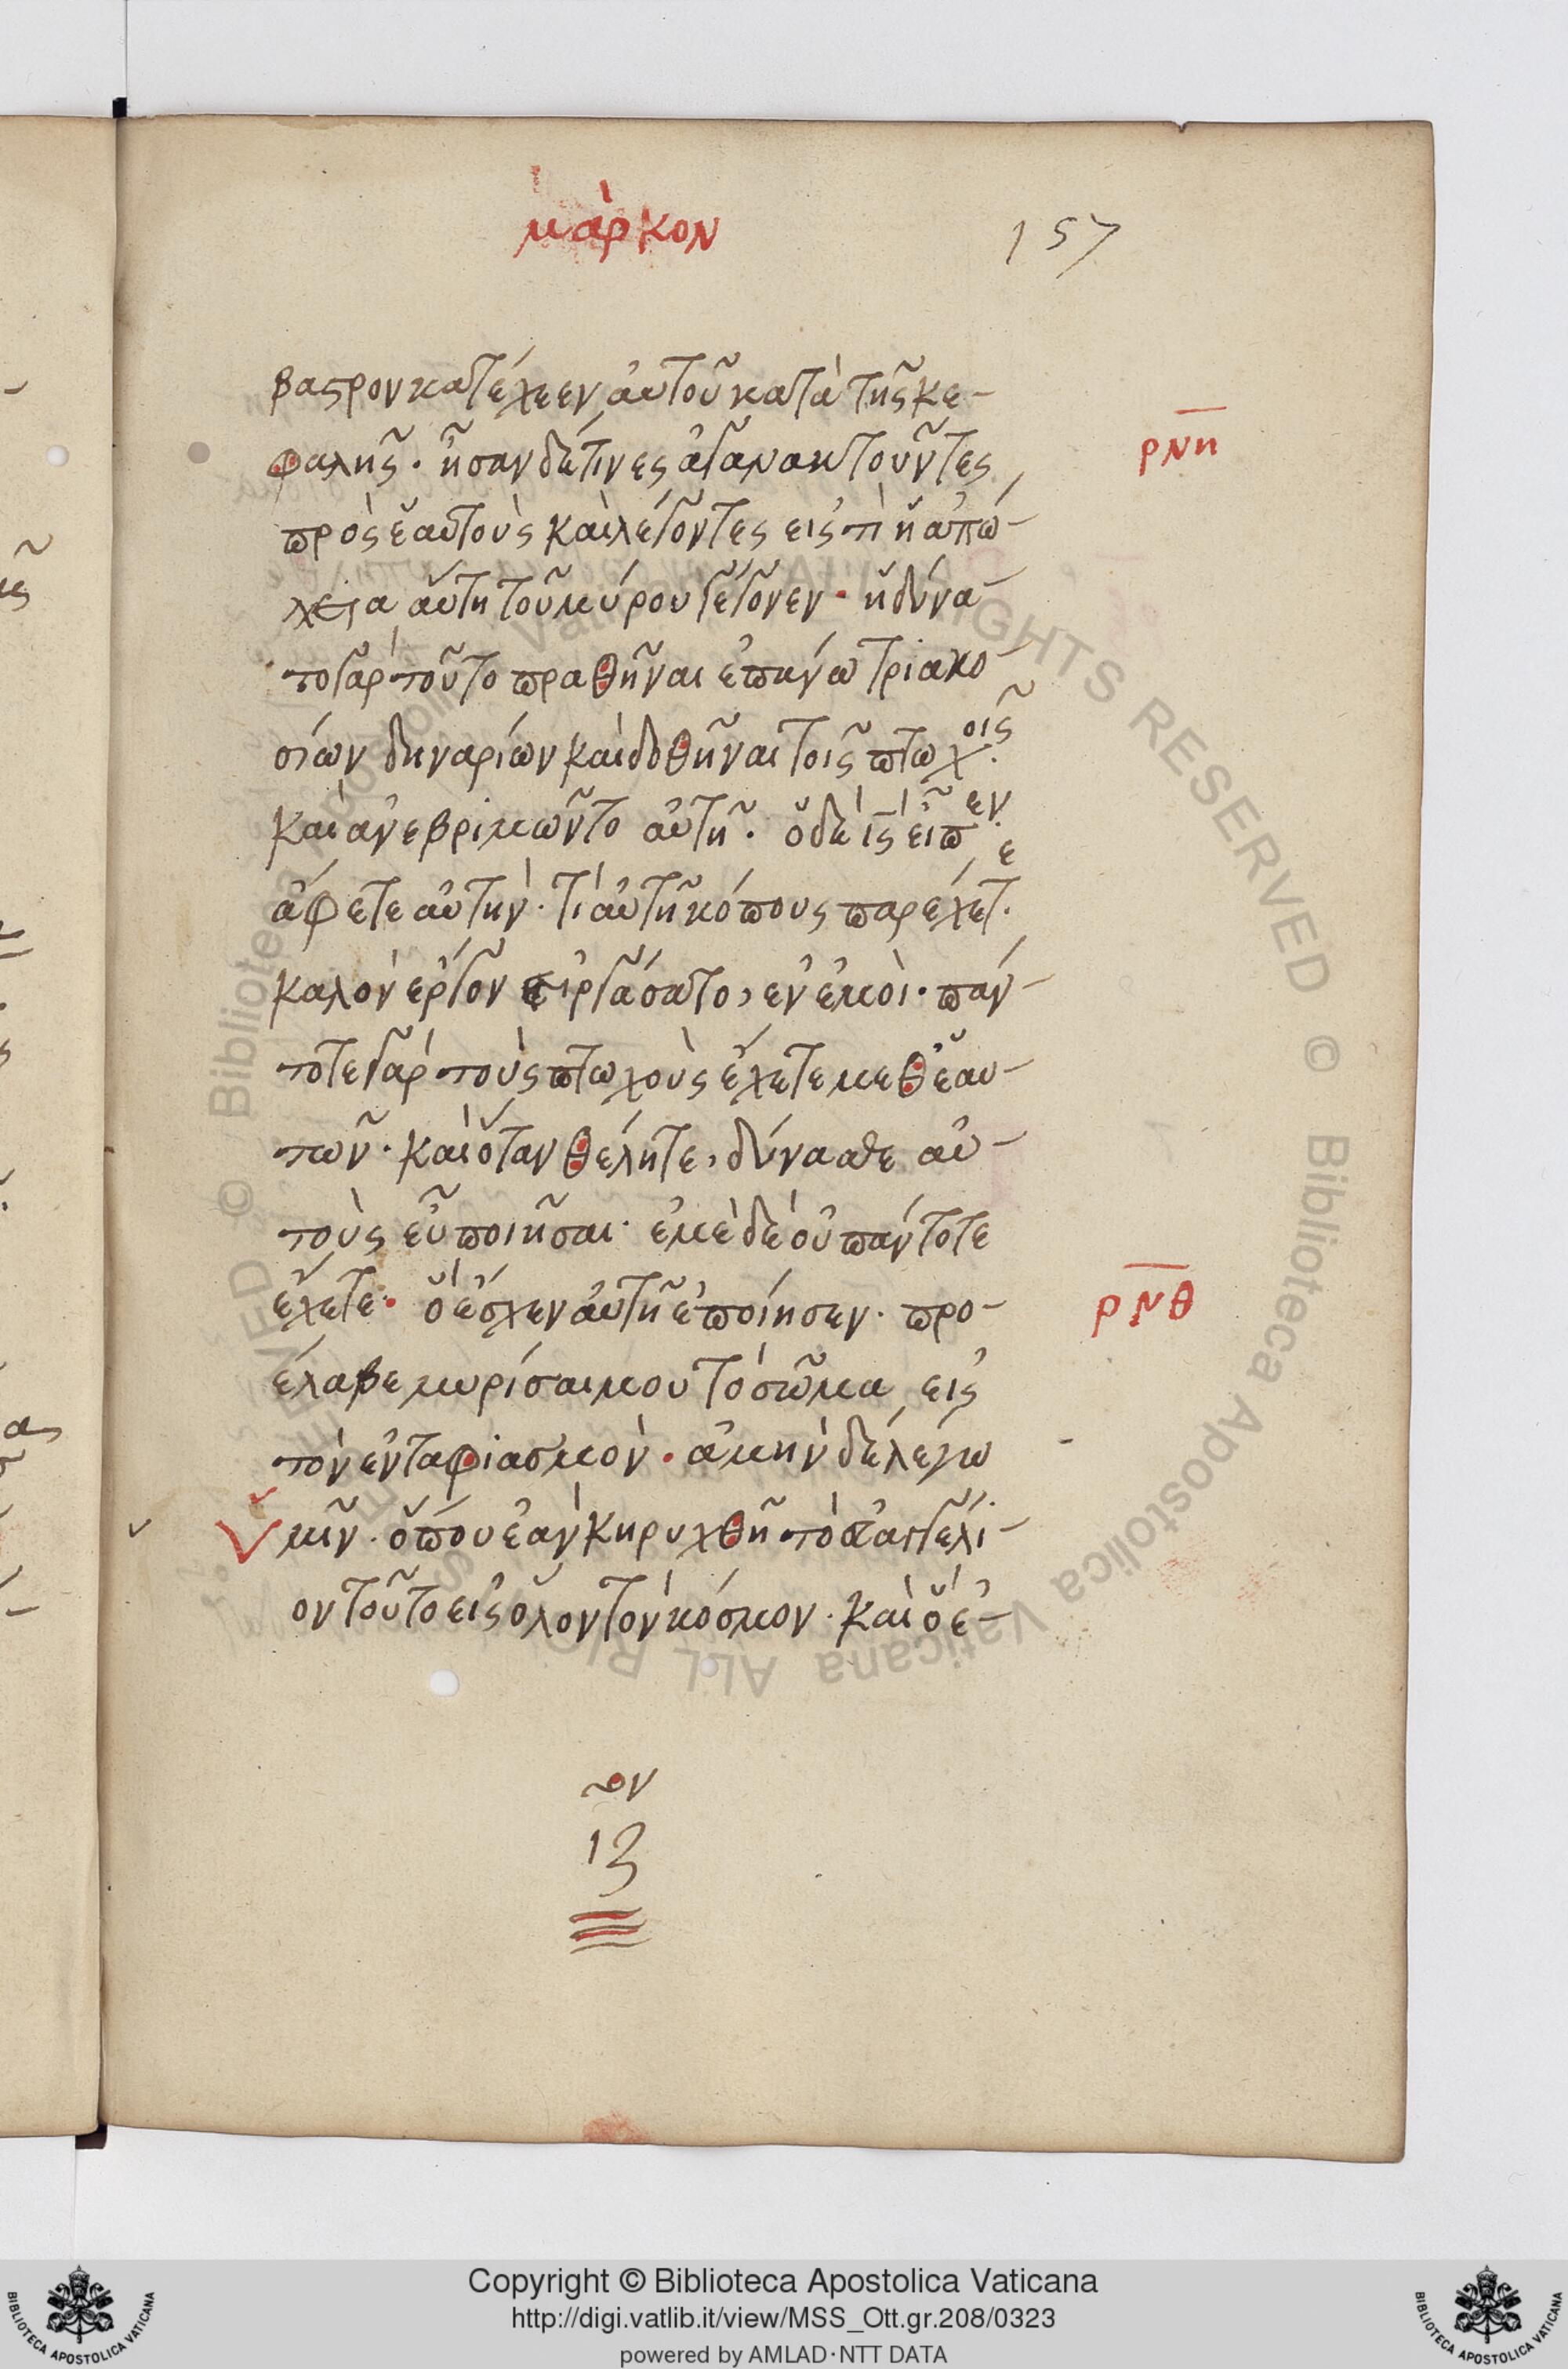 μάρκον
157
βαστρον κατέχεεν αὐτοῦ κατὰ τῆς κε-
φαλῆς. ἦσαν δέ τινες ἀγανακτοῦντες
ρνη
πρὸς ἑαυτοὺς καὶ λέγοντες εἰς τί ἡ ἀπώ-
λεια αὕτη τοῦ μύρου γέγονεν. ἠδύνα-
το γὰρ τοῦτο πραθῆναι ἐπάνω τριακο-
σίων δηναρίων καὶ δοθῆναι τοῖς πτωχοῖς.
καὶ ἀνεβριμῶντο αὐτῆ. ὁ δὲ ις εἶπεν.
ἄφετε αὐτὴν. τί αὐτῆ κόπους παρέχετε.
καλὸν ἔργον εἰργάσατο, ἐν ἐμοὶ. πάν-
τοτε γὰρ τοὺς πτωχοὺς ἔχετε μεθ ἑαυ-
τῶν. καὶ ὅταν θέλητε, δύνασθε αὐ-
τοὺς εὖ ποιῆσαι. ἐμὲ δὲ οὐ πάντοτε
ἔχετε. ὃ ἔσχεν αὐτῆ ἐποίησεν. προ-
ρνθ
έλαβε μυρίσαι μου τὸ σῶμα εἰς
τὸν ἐνταφιασμὸν. ἀμὴν δὲ λέγω
ὑμῖν. ὅπου ἐὰν κηρυχθῆ τὸ εὐαγγέλι-
ον τοῦτο εἰς ὅλον τὸν κόσμον. καὶ ὃ ἐ-
ον
ιζ
© Biblioteca Apostolica Vaticana ALL RIGHTS RESERVED © Biblioteca Apostolica Vaticana ALL RIGHTS RESERVED
Copyright © Biblioteca Apostolica Vaticana
http://digi.vatlib.it/view/MSS_Ott.gr.208/0323
powered by AMLAD·NTT DATA
BIBLIOTECA APOSTOLICA VATICANA
BIBLIOTECA APOSTOLICA VATICANA